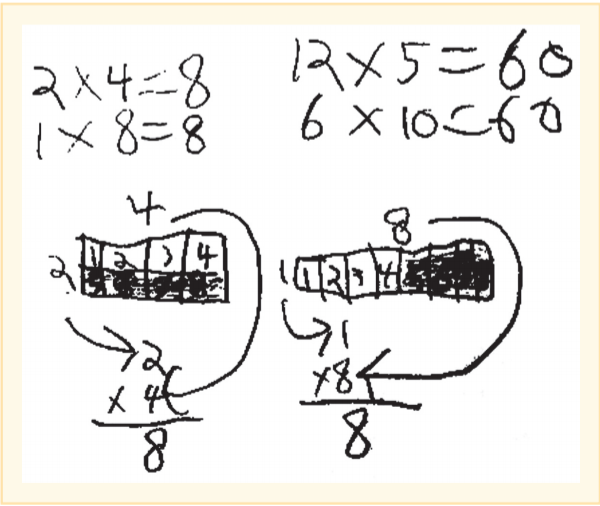 2 × 4 = 8
1 × 8 = 8
12 × 5 = 60
6 × 10 = 60
4
2
1 2 3 4
2
× 4
8
8
1
1 2 3 4
1
× 8
8